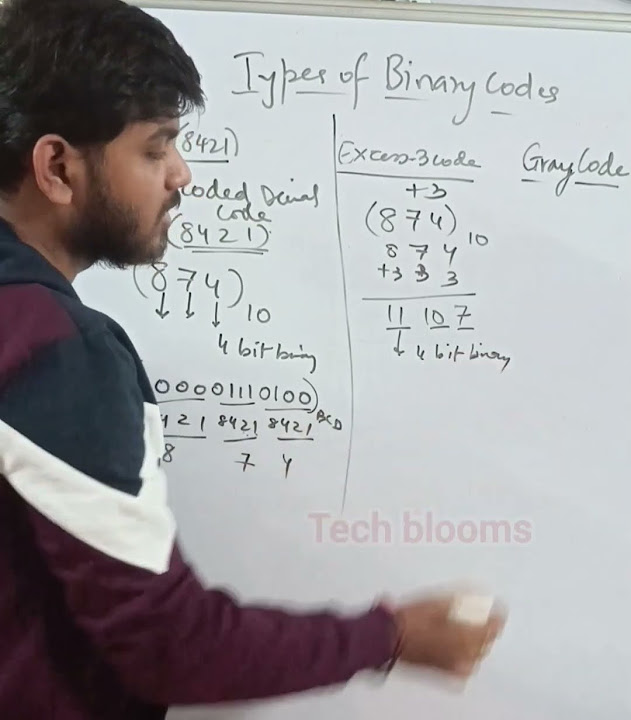 Types of Binary Codes
(8421)
coded Decimal
code
(8421)
(874)10
4 bit binary
00001110100)BCD
421 8421 8421
8 7 4
Excess-3 code
+3
(874)10
8 7 4
+3 3 3
11 10 7
4 bit binary
Gray Code
Tech blooms